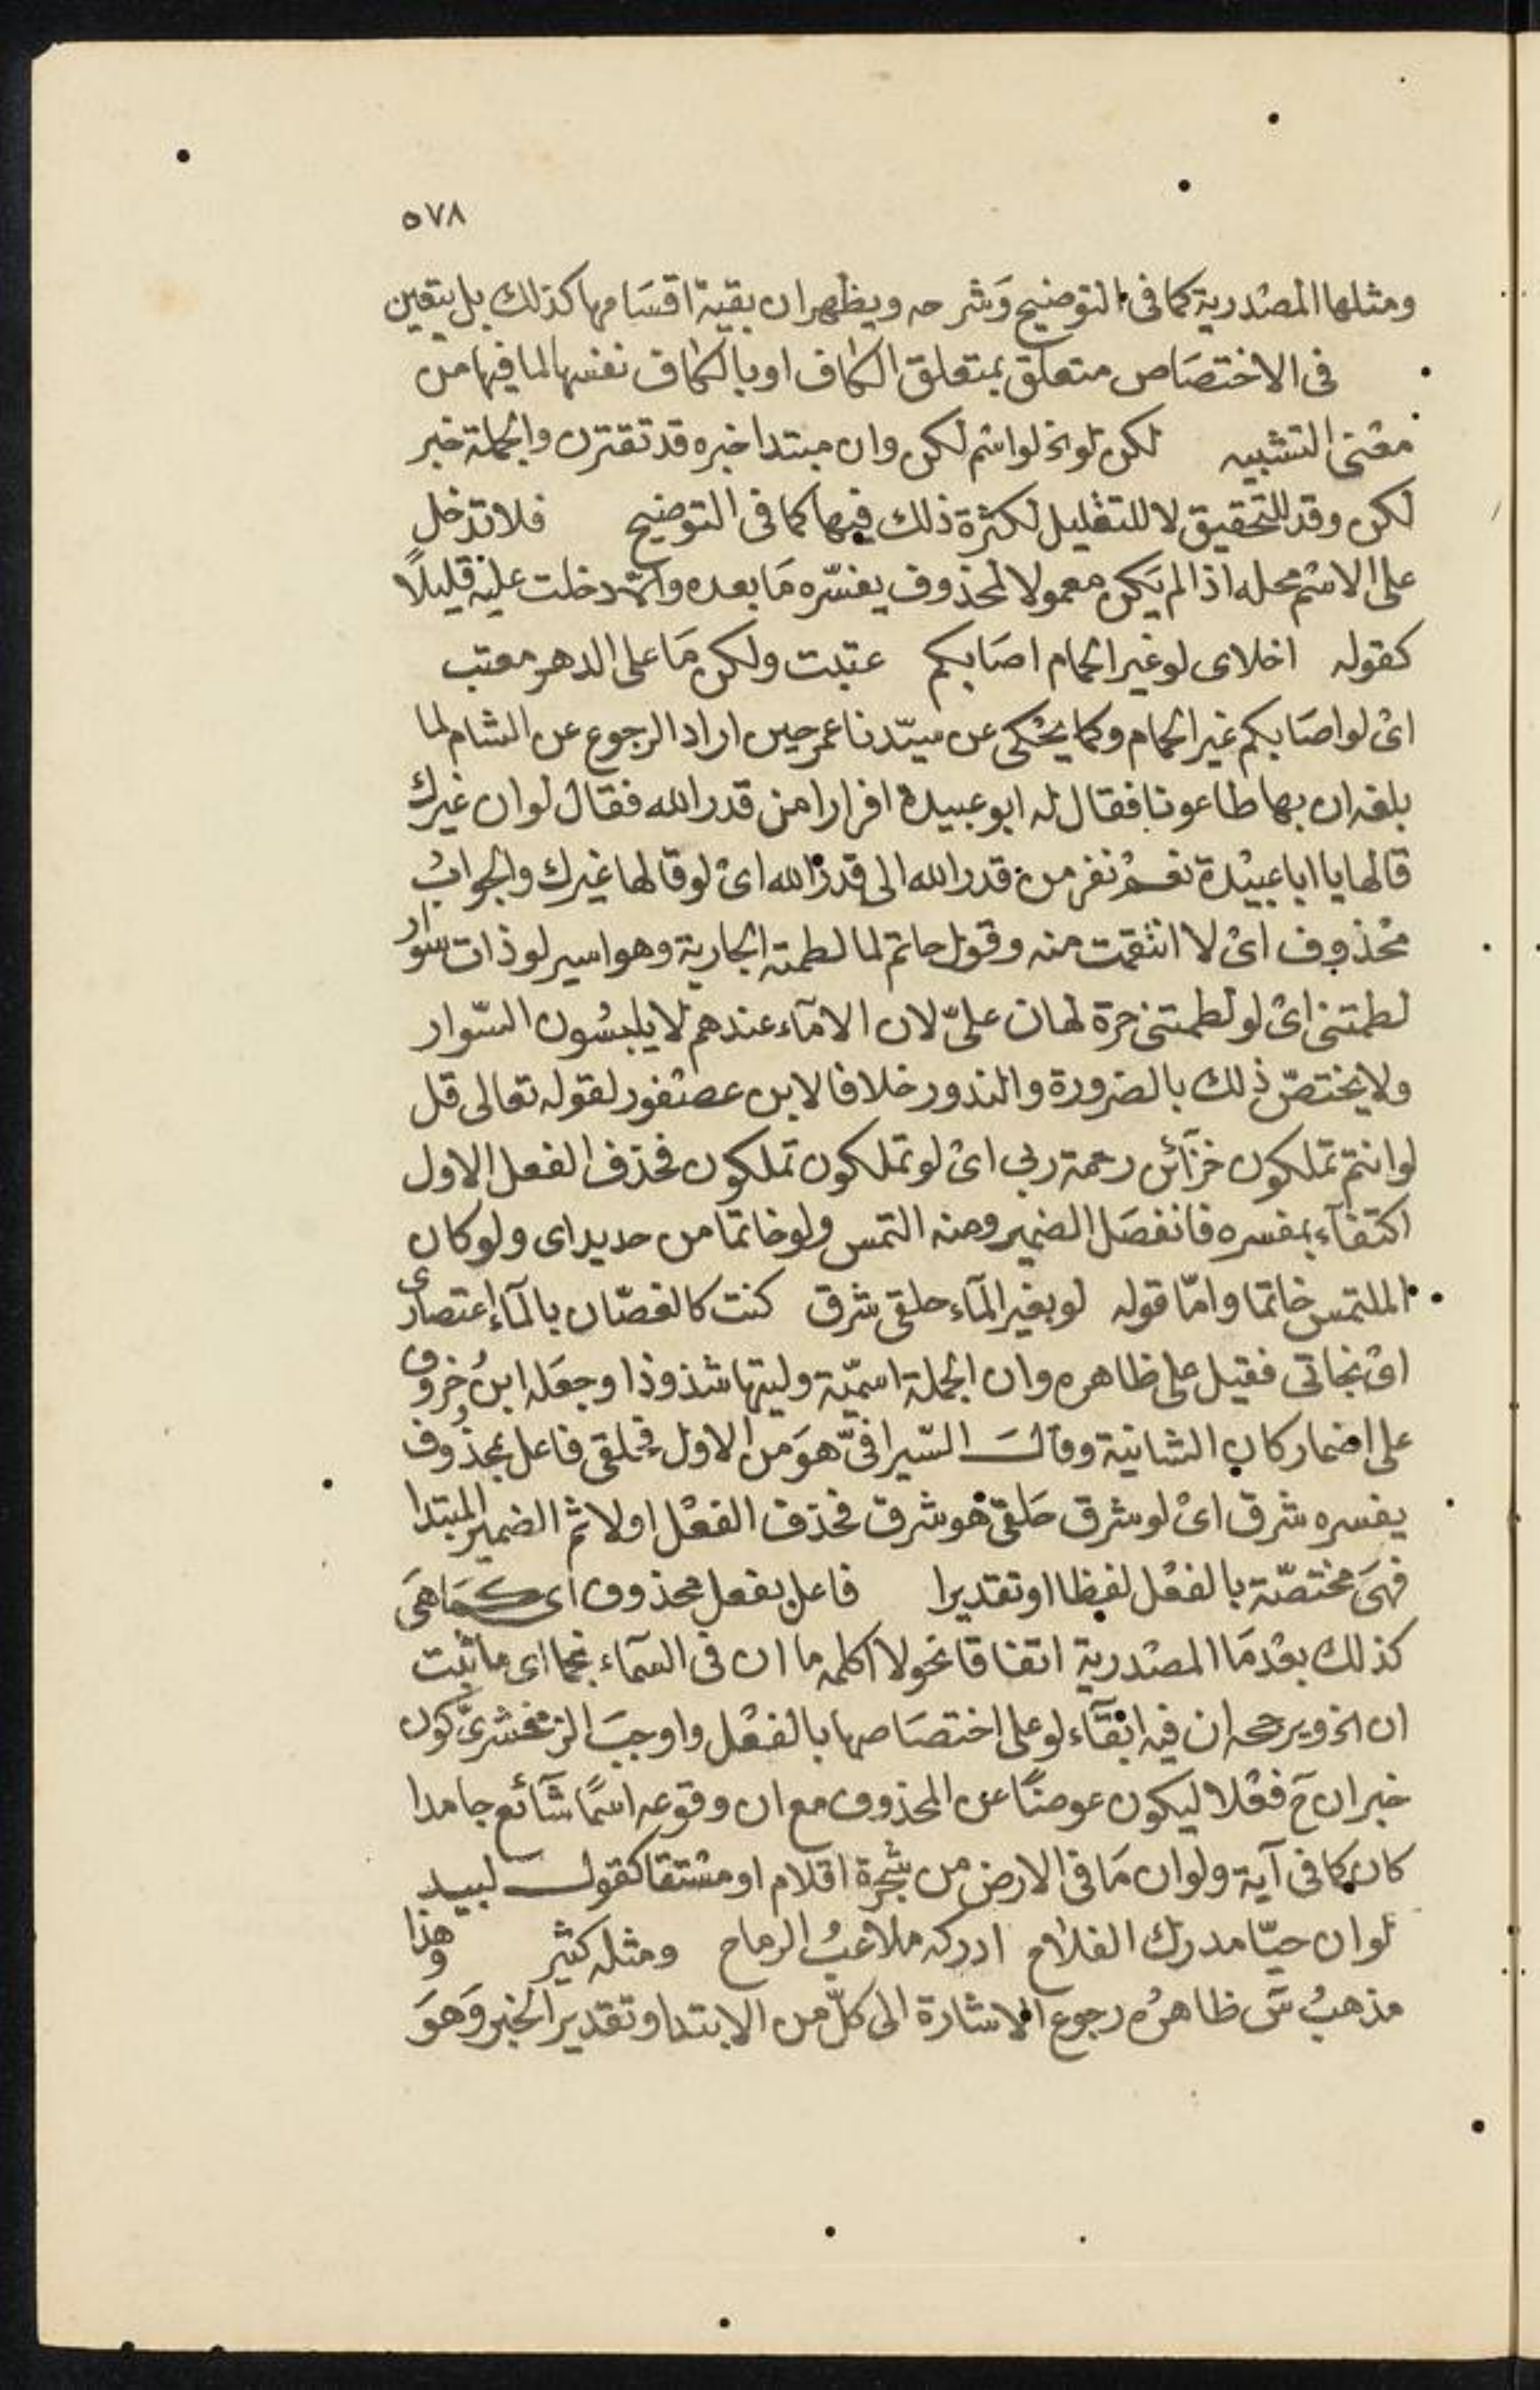 ٥٧٨
ومثلها المصدرية كما فى التوضيح وَشرحه ويظهر ان بقية اقسَامها كذلك بل يتعين
فى الاختصَاص متعلق بمتعلق الكاف او بالكاف نفسها لما فيها من
معنى التشبيه لكن لو الخ لو اسم لكن وان مبتدا خبره قد تقترن والجملة خبر
لكن وقد للتحقيق لا للتقليل لكثرة ذلك فيها كما فى التوضيح فلا تدخل
على الاسم محله اذا لم يَكن معمولا لمحذوف يفسّره مَا بعده والا دخلت عليه قليلاً
كقوله اخلاى لو غير الحمام اصَابكم عتبت ولكن مَا على الدهر معتب
اى لو اصَابكم غير الحمام وكما يحكى عن سيّدنا عمر حين اراد الرجوع عن الشام لما
بلغه ان بها طاعونا فقال له ابو عبيدة افرارا من قدر الله فقال لو ان غيرك
قالها يا ابا عبيدة نعم نفر من قدر الله الى قدر الله اى لو قالها غيرك والجوابُ
محذوف اى لا انتقمت منه وقول حاتم لما لطمته الجارية وهو اسير لو ذات سوار
لطمتنى اى لو لطمتنى حرة لهان علىّ لان الامآء عندهم لا يلبسُون السّوار
ولا يختصّ ذلك بالضرورة والندور خلافا لابن عصفور لقوله تعالى قل
لو انتم تملكون خزآئن رحمة ربى اى لو تملكون تملكون فحذف الفعل الاول
اكتفآء بمفسره فانفصَل الضمير ومنه التمس ولو خاتمًا من حديد اى ولو كان
الملتمس خاتما وامّا قوله لو بغير المآء حلقى شرق كنت كالغصّان بالمآء اعتصارى
اى نجاتى فقيل على ظاهره وان الجملة اسميّة وليتها شذوذا وجعَله ابن خروف
على اضمار كان الشانية وقالَ السّيرافىّ هوَ من الاول فحلقى فاعل بمحذوف
يفسره شرق اى لو شرق حَلقى هو شرق فحذف الفعْل اولا ثم الضمير المبتدا
فهىَ مختصّة بالفعْل لفظا او تقديرا فاعل بفعل محذوف اى كمَا هىَ
كذلك بعْد مَا المصْدرية اتفاقا نحو لا اكلمه ما ان فى السمآء نجما اى ما ثبت
ان الخ ويرجحه ان فيه ابقآء لو على اختصَاصها بالفعْل واوجبَ الزمخشرىّ كون
خبر ان ح فعْلا ليكون عوضًا عن المحذوف مع ان وقوعه اسمًا شآئع جامدا
كان كما فى آية ولو ان مَا فى الارض من شجرة اقلام او مشتقا كقول لبيد
لو ان حيّا مدرك الفلاح ادركه ملاعبُ الرماح ومثله كثير وهذا
مذهبُ سَ ظاهرُه رجوع الاشارة الى كلّ من الابتدا وتقدير الخبر وَهوَ